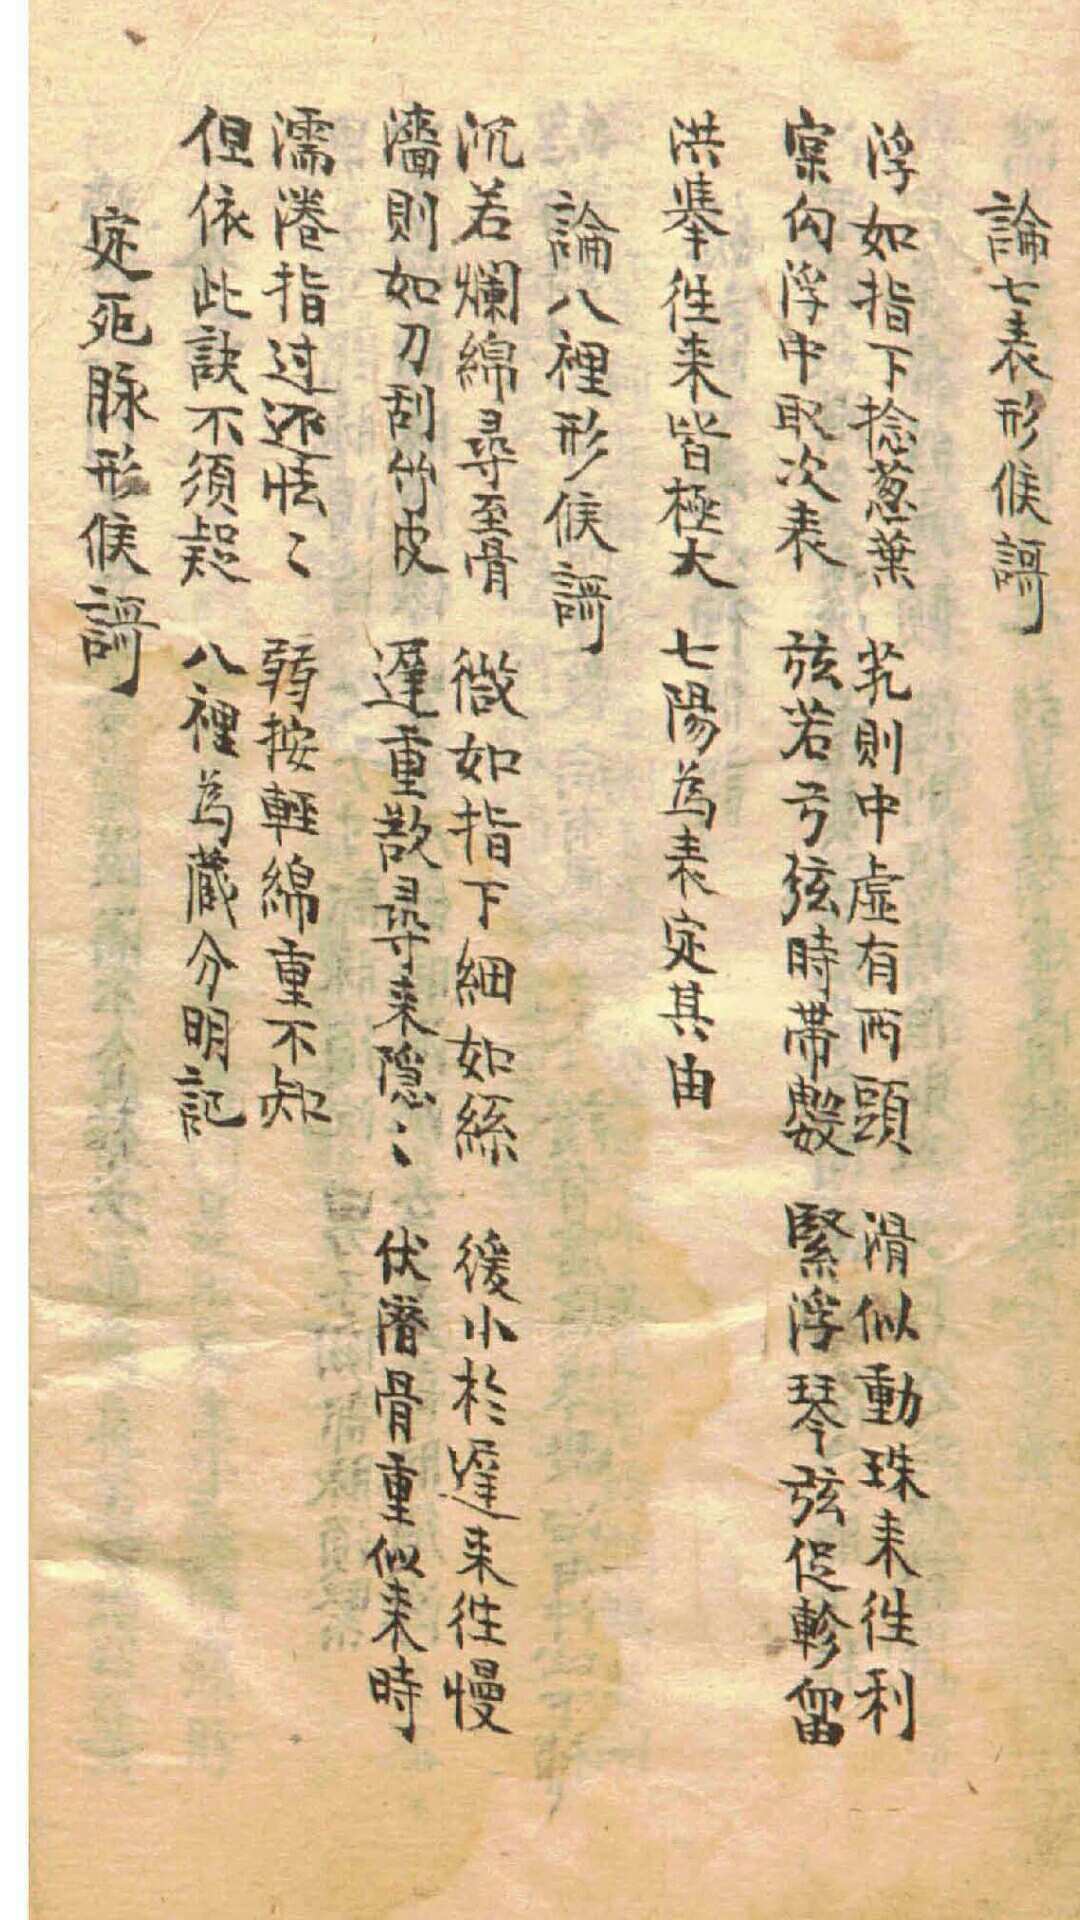 論七表形候謌
浮如指下捻葱葉 芤則中虛有両頭 滑似動珠来徃利
寔勾浮中取次表 弦若弓弦時帶數 緊浮琴弦促軫畱
洪舉徃来皆極大 七陽為表定其由
論八裡形候謌
沉若爛綿尋至骨 微如指下細如絲 緩小於遲来徃慢
濇則如刀刮竹皮 遲重散尋来隠〻 伏濳骨重似来時
濡港指过还怯〻 弱按輕綿重不知
但依此訣不須疑 八裡為藏分明記
定死脉形候謌